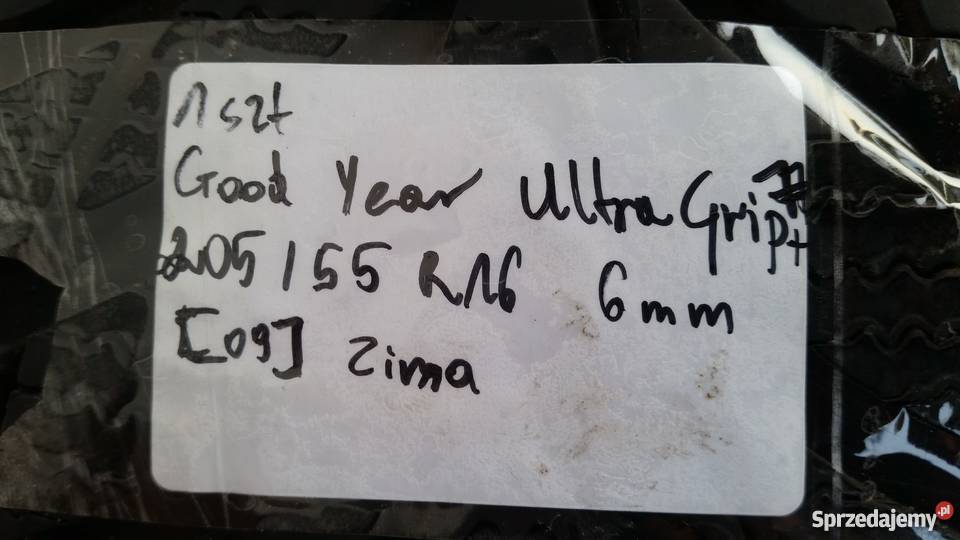 1 szt
Good Year Ultra Grip 7+
205/55 R16 6mm
[09] Zima
Sprzedajemy.pl